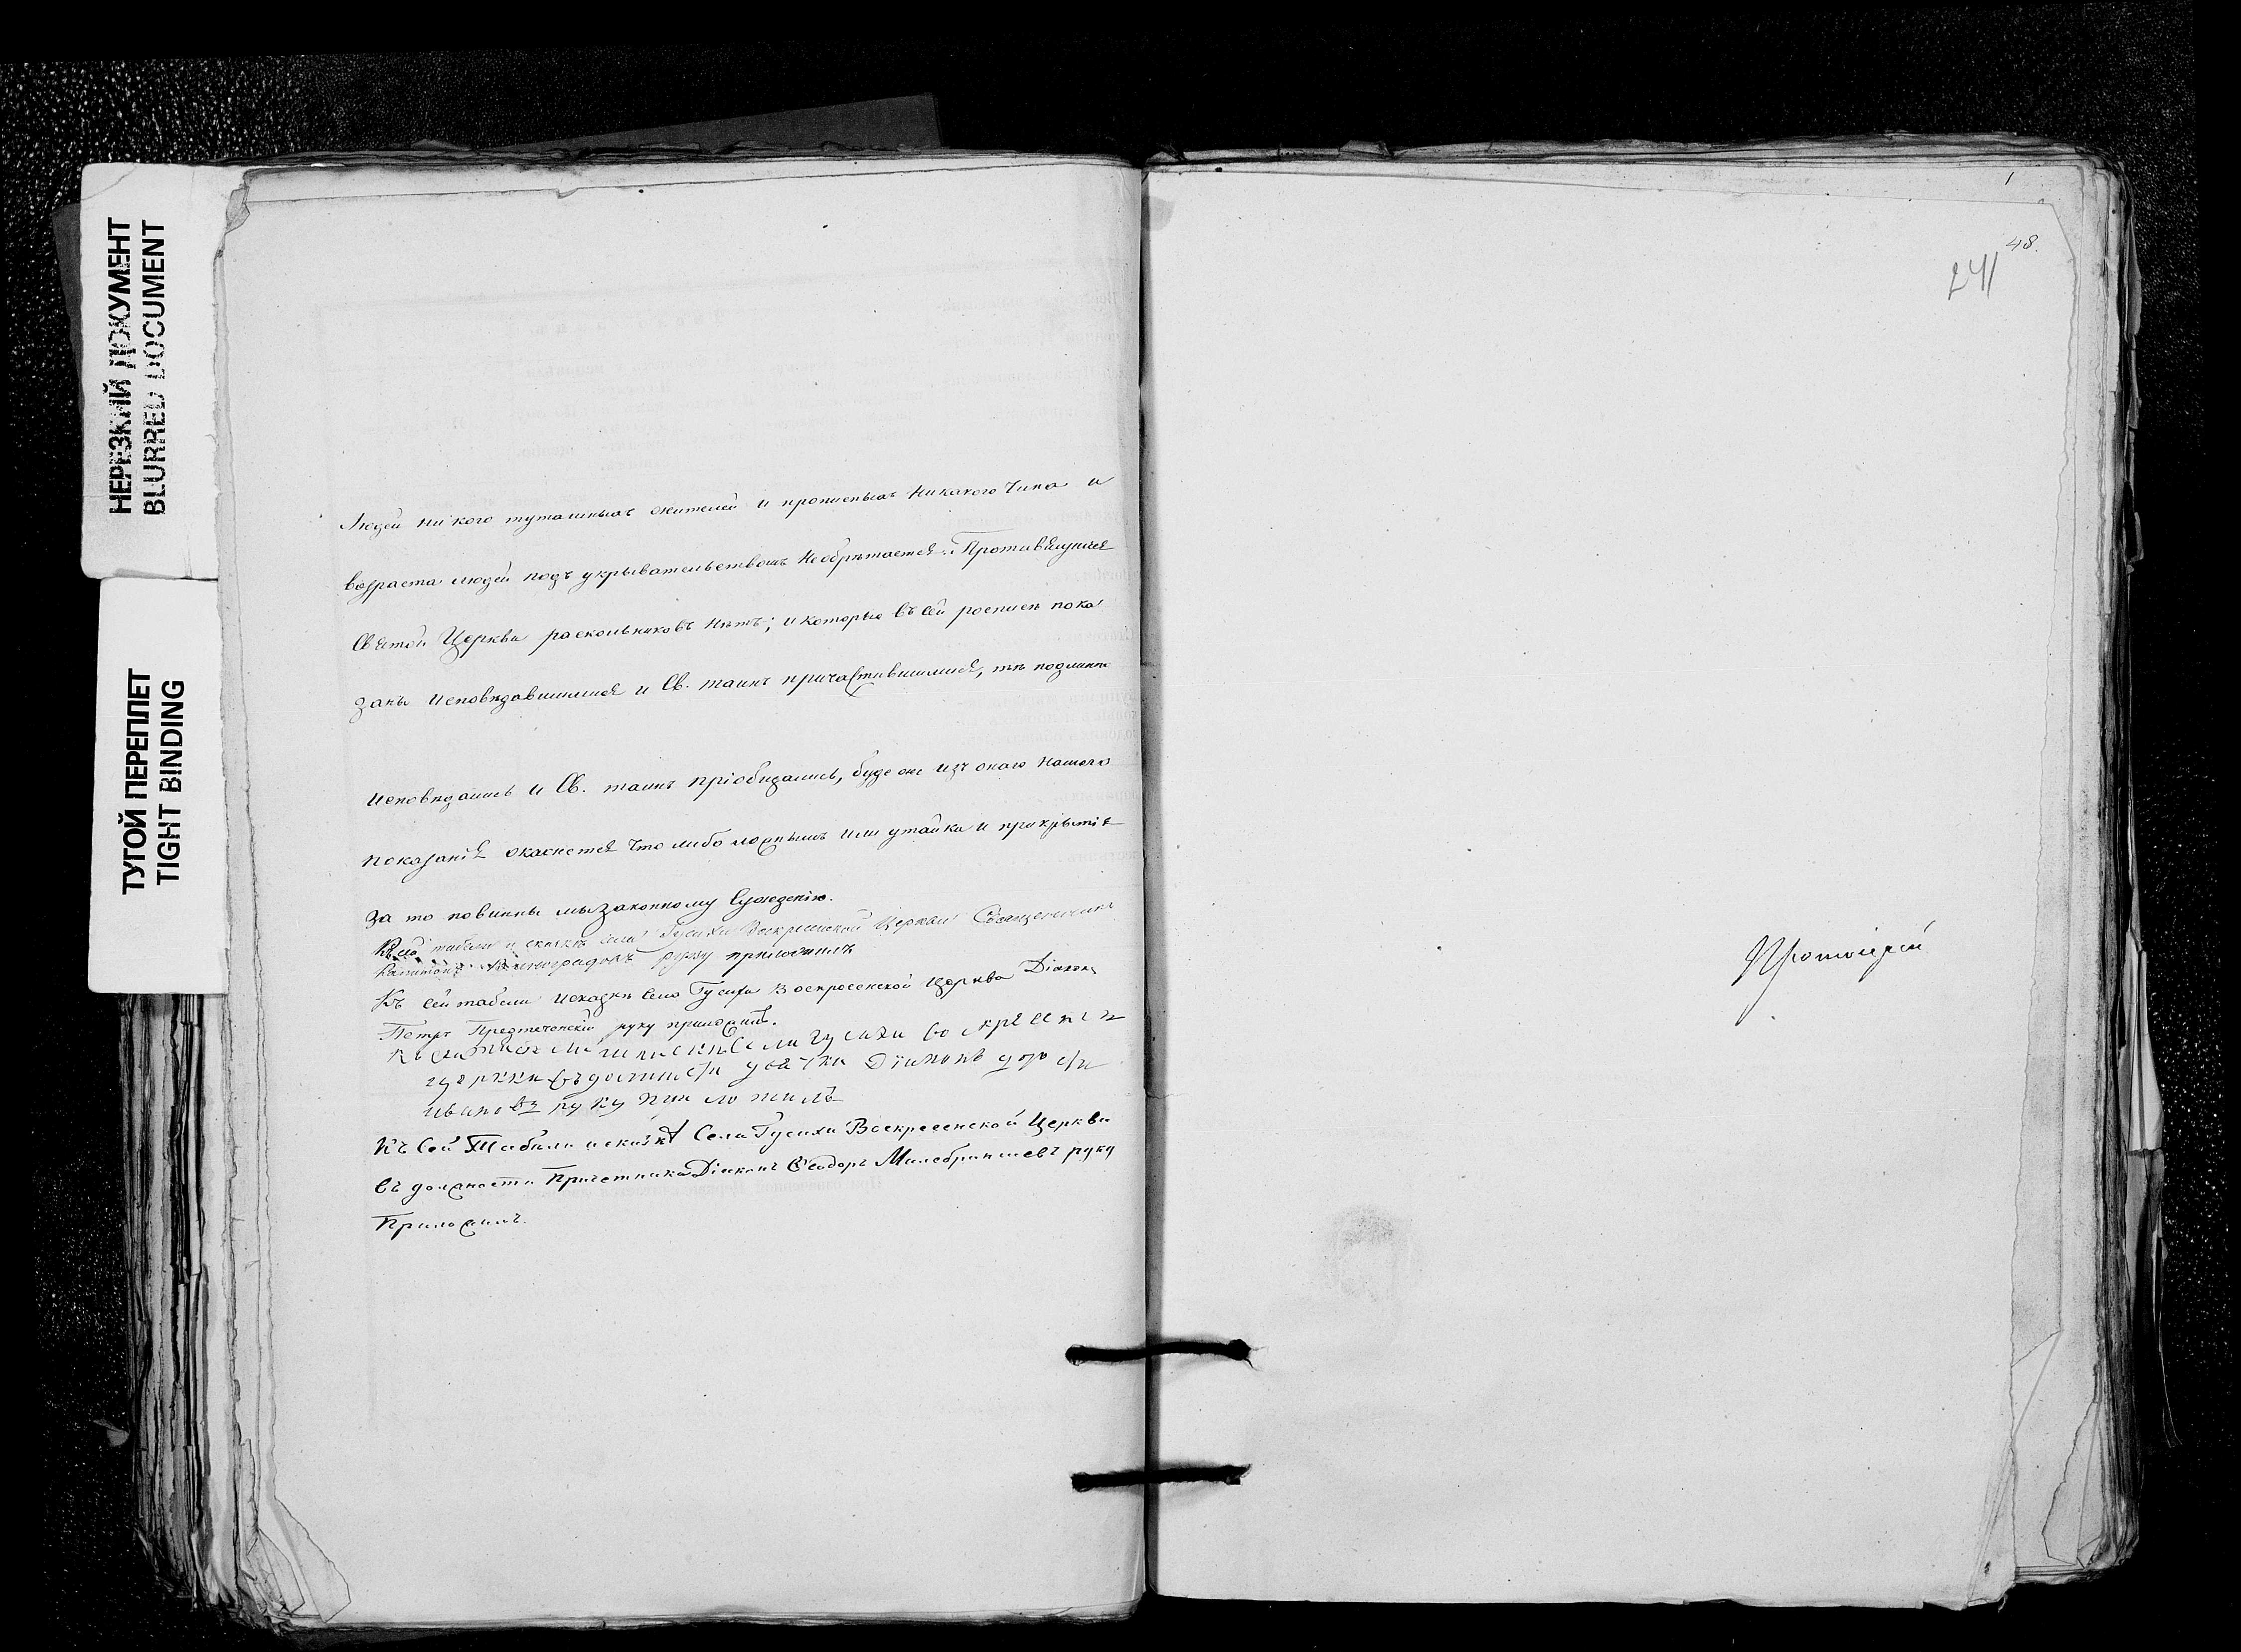 НЕРЕЗКИЙ ДОКУМЕНТ
BLURRED DOCUMENT
ТУГОЙ ПЕРЕПЛЕТ
TIGHT BINDING
Людей никого туташныхъ жителей и прописныхъ никакого чина и
возраста людей подъ укрывательствомъ необрѣтается. Противящихся
Святой Церкви раскольниковъ нѣтъ; и которые въ сей росписи пока
заны исповѣдавшимися и Св. таинъ причастившимися, тѣ подлинно
исповѣдались и Св. таинъ пріобщались, буде же изъ онаго нашего
показанія окажется что либо ложнымъ или утайка и прикрытіе
за то повинны мы законному сужденію.
Къ сей табели и сказкѣ села Гусихи Воскресенской Церкви Священникъ
руку приложилъ
Къ сей табели и сказкѣ села Гусихи Воскресенской Церкви Діаконъ
Петръ Предтеченскій руку приложилъ.
села гусихи воскресенск
церкви въ должности діаконъ
ивановъ руку приложилъ
Къ сей Табели и сказкѣ Села Гусихи Воскресенской Церкви
въ должности Причетника Діаконъ Ѳеодоръ руку
Приложилъ.
48.
241